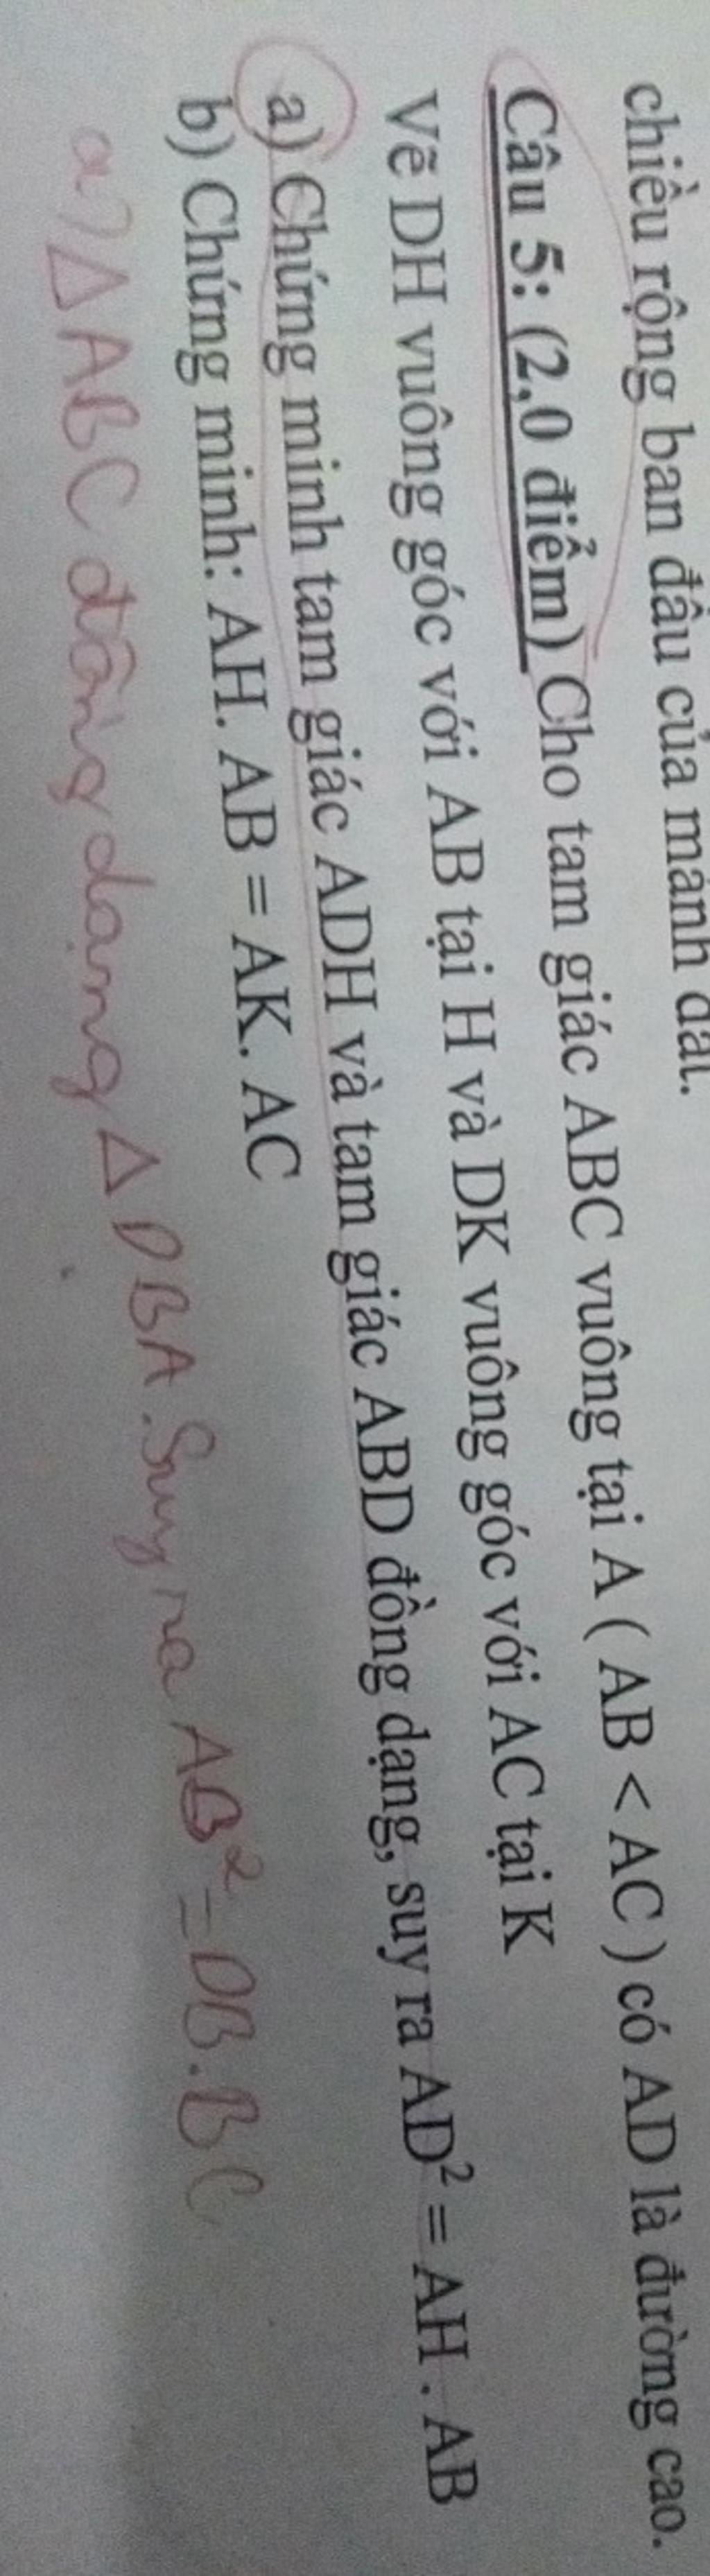 chiều rộng ban đầu của mảnh đất.
Câu 5: (2,0 điểm) Cho tam giác ABC vuông tại A ( AB < AC ) có AD là đường cao.
Vẽ DH vuông góc với AB tại H và DK vuông góc với AC tại K
a) Chứng minh tam giác ADH và tam giác ABD đồng dạng, suy ra AD² = AH . AB
b) Chứng minh: AH. AB = AK. AC
a) Δ ABC đồng dạng Δ DBA. Suy ra AB² = DB. BC